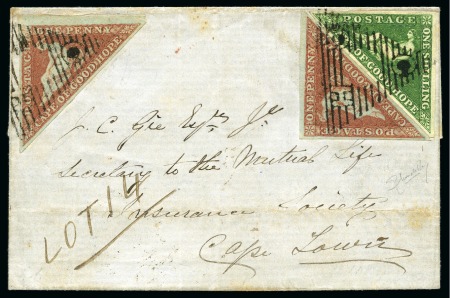 POSTAGE
ONE PENNY
CAPE OF GOOD HOPE
ONE PENNY
POSTAGE
CAPE OF GOOD HOPE
POSTAGE
ONE SHILLING
CAPE OF GOOD HOPE
J. C. Gie Esqre Jr
Secretary to the Mutual Life
Insurance Society
Cape Town
LOT 14